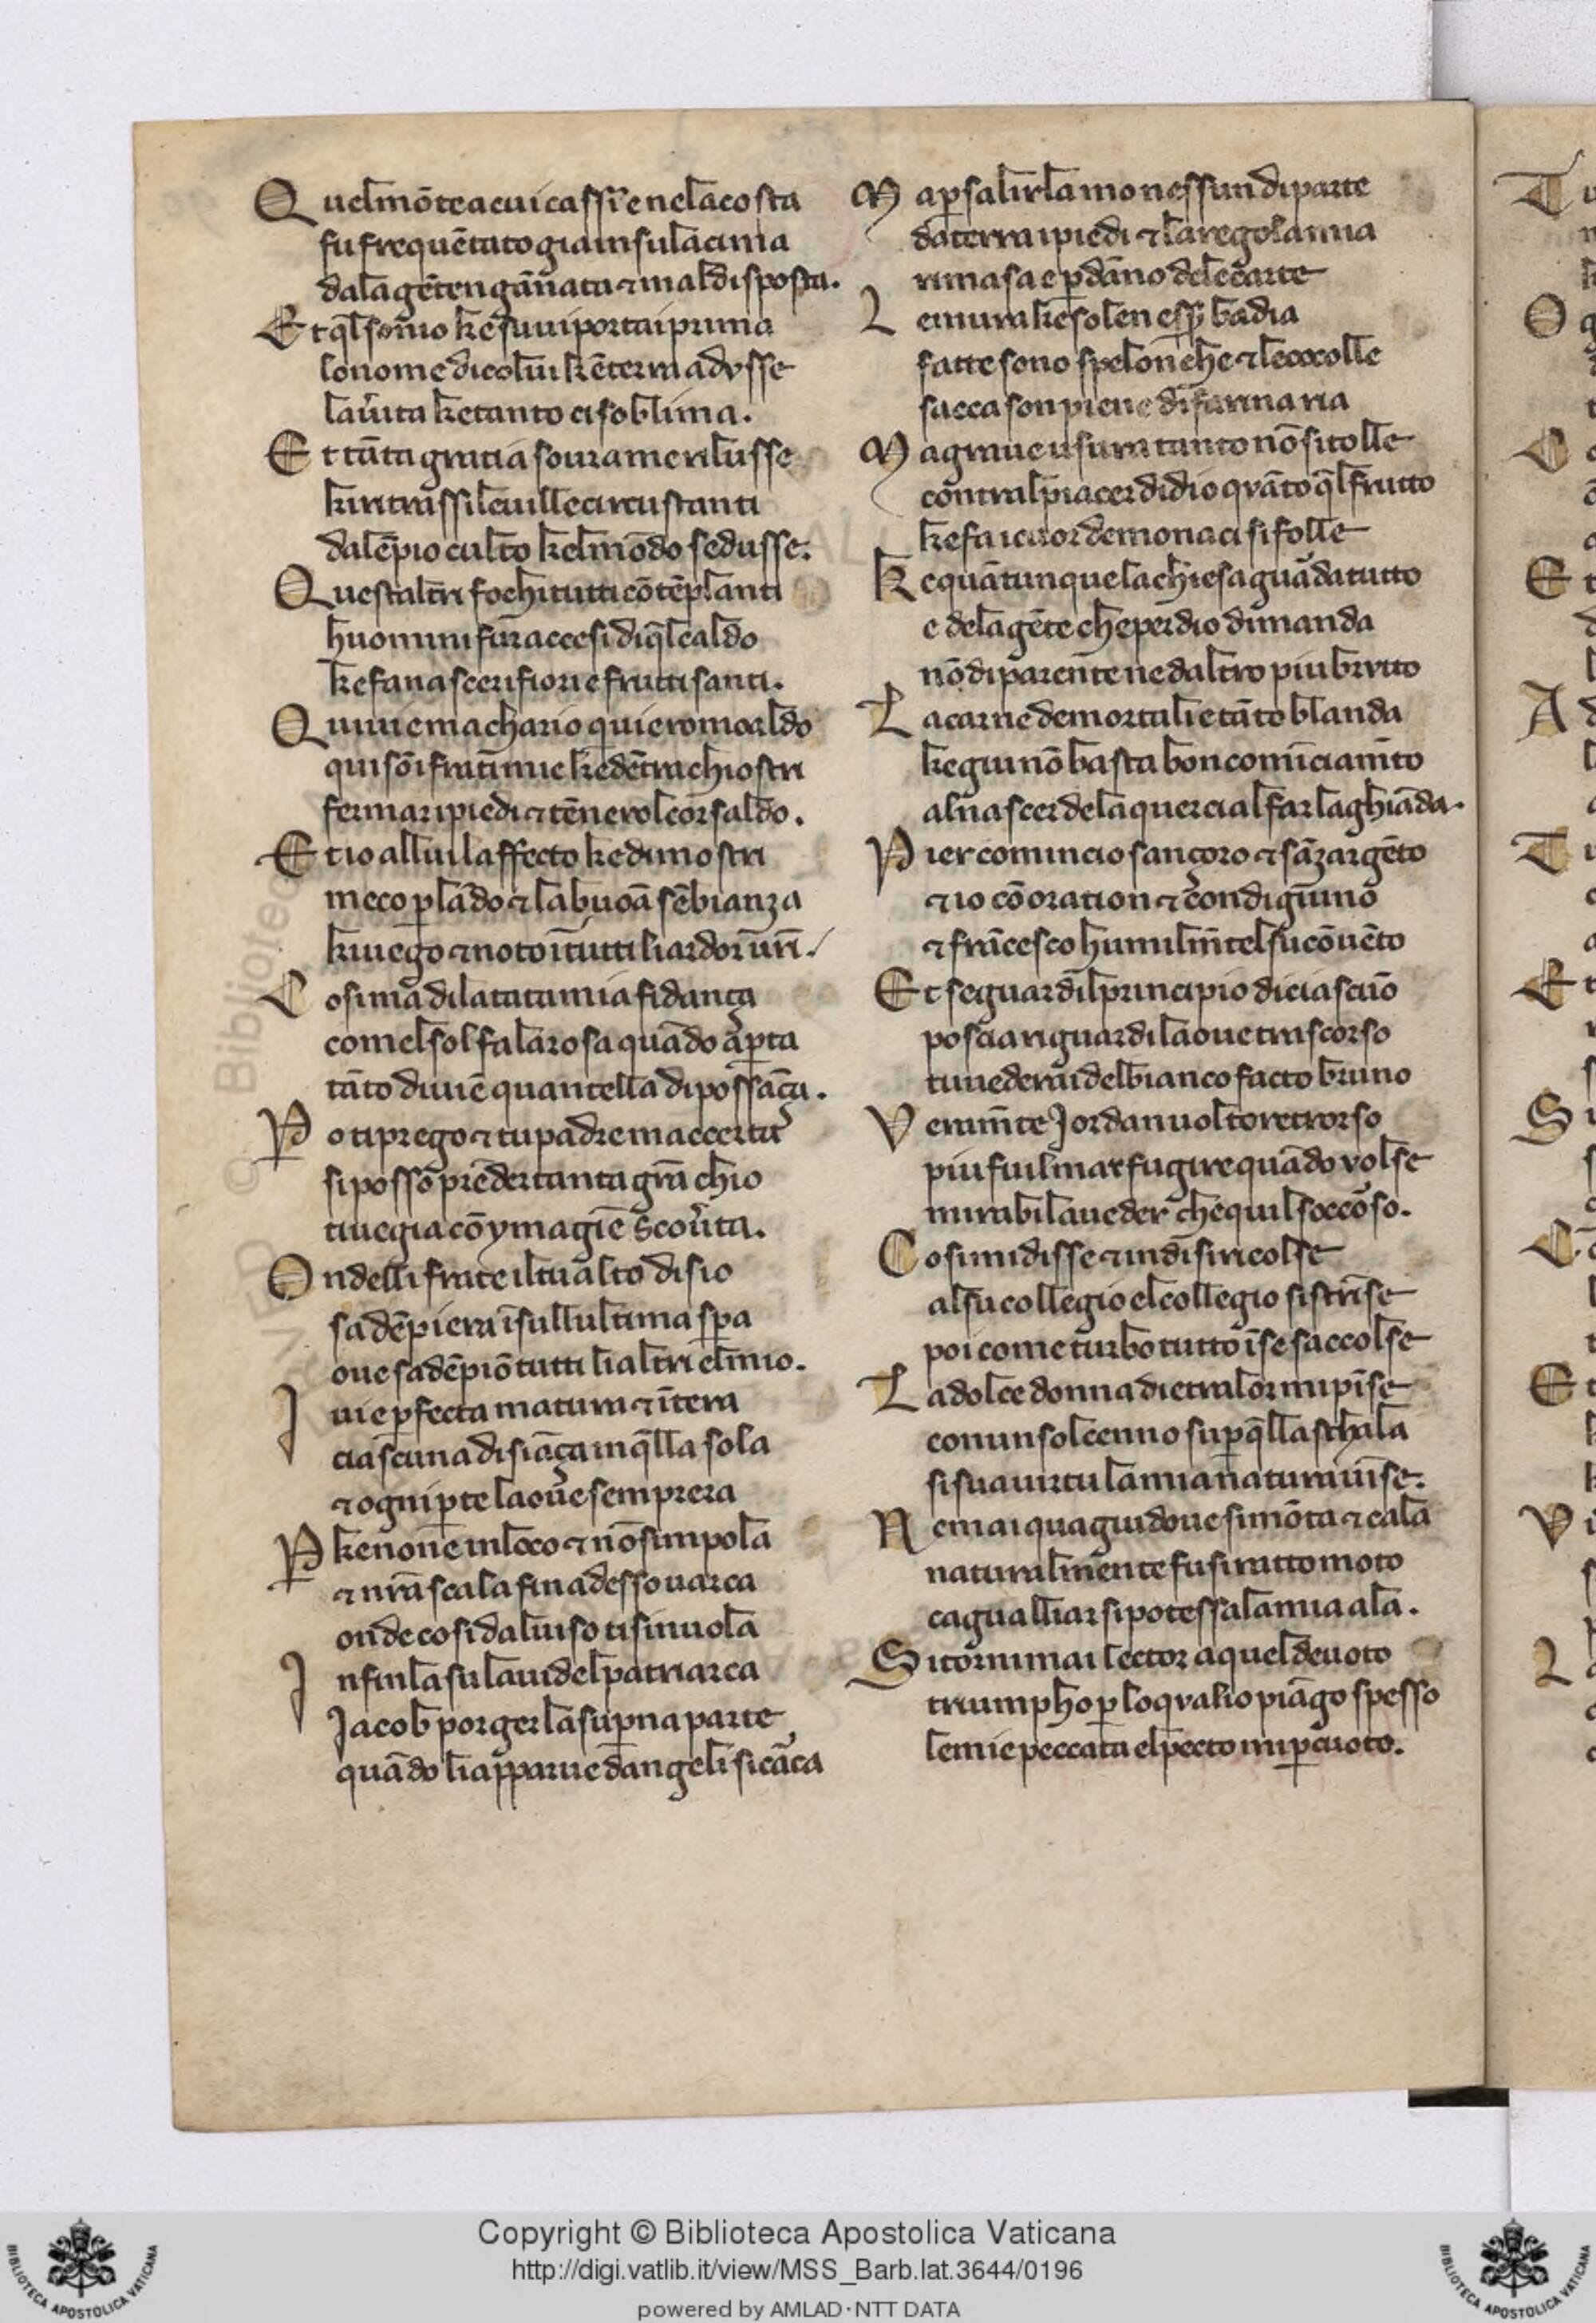 Quel mōte a cui cassīe ne la costa
fu frequētato gia in su la cima
da la gēte ngānata ⁊ mal disposta.
Et ql̄ son̄io ke su ui portai prima
lo nome di colui kē terra adusse
la ū̓ita ke tanto ci soblima.
Et tāta gratia soura me rilusse
kiritrassi le uille circustanti
dal ēpio culto kel mōdo sedusse.
Questaltri fochi tutti cōtēplanti
huomini fur̄ accesi di ql̄ caldo
ke fa nascer i fiori e frutti santi.
Quiui e machario qui e romoaldo
qui sōi frati mie ke dētra chiostri
fermar i piedi ⁊ tēnero l cor saldo.
Et io a llui laffecto ke dimostri
meco p̄lādo ⁊ la buōa sēbianza
kiuegο ⁊ noto ī tutti li ardor ur̄i.
Cosi ma dilatata mia fidança
comel sol fa la rosa quādo ap̓ta
tāto diuiē quantella di possāça.
Po ti prego ⁊ tu padre maccerta
si posso prēder tanta gr̄a chio
ti uegia cō ymagīe scoū̓ta.
Ondelli frate il tu alto disio
sadēpiera ī sullultima sp̄a
oue sadēpiō tutti li altri el mio.
Iui e p̄fecta matura ⁊ ītera
ciascuna disiāça in q̄lla sola
⁊ ogni p̄te la oū̓e sempr era
P̄ke none in loco ⁊ nō simpola
⁊ nr̄a scala fin ad esso uarca
onde cosi dal uiso ti sinuola
Infin la su la uidel patriarca
Jacob porger la sup̄na parte
quādo li apparue dangeli si cāca
Ma p̄ salirla mo nessun diparte
da terra i piedi ⁊ la regola mia
rimasa e p̄ dāno dele carte
Le mura ke solen esser badia
fatte sono spelonche ⁊ le cocolle
sacca son piene di farina ria
Ma graue usura tanto nō si tolle
contral piacer di dio quāto ql̄ frutto
ke fa i cuor de monaci si folle
Ke quātunque la chiesa guāda tutto
e dela gēte che per dio dimanda
nō di parente ne daltro piu brutto
La carne de mortali e tāto blanda
ke giu nō basta bon comīciam̄to
al nascer de la quercia al far la ghiāda.
Pier comincio sançoro ⁊ sāzargēto
⁊ io cō oration ⁊ con digiuno
⁊ francesco humilm̄te l su cōuēto
Et se guardil principio di ciascūo
poscia riguardi la oue trascorso
tu uederai del bianco facto bruno
Veram̄te Jordan uolto retrorso
piu fu il mar fugire quādo volse
mirabil a ueder che qui l soccōso.
Cosi mi disse ⁊ indi si ricolse
al su collegio el collegio si strīse
poi come turbo tutto ī se saccolse
La dolce donna dietra lor mi pīse
con un sol cenno su p̄ q̄lla schala
si sua uirtu la mia natura uīse.
Ne mai qua giu doue si mōta ⁊ cala
naturalmente fu si ratto moto
cagualliar si potessa la mia ala.
Si torni mai lector a quel deuoto
triumpho p̄ lo quale io piāgo spesso
le mie peccata el pecto mi p̄cuoto.
Copyright © Biblioteca Apostolica Vaticana
http://digi.vatlib.it/view/MSS_Barb.lat.3644/0196
powered by AMLAD·NTT DATA